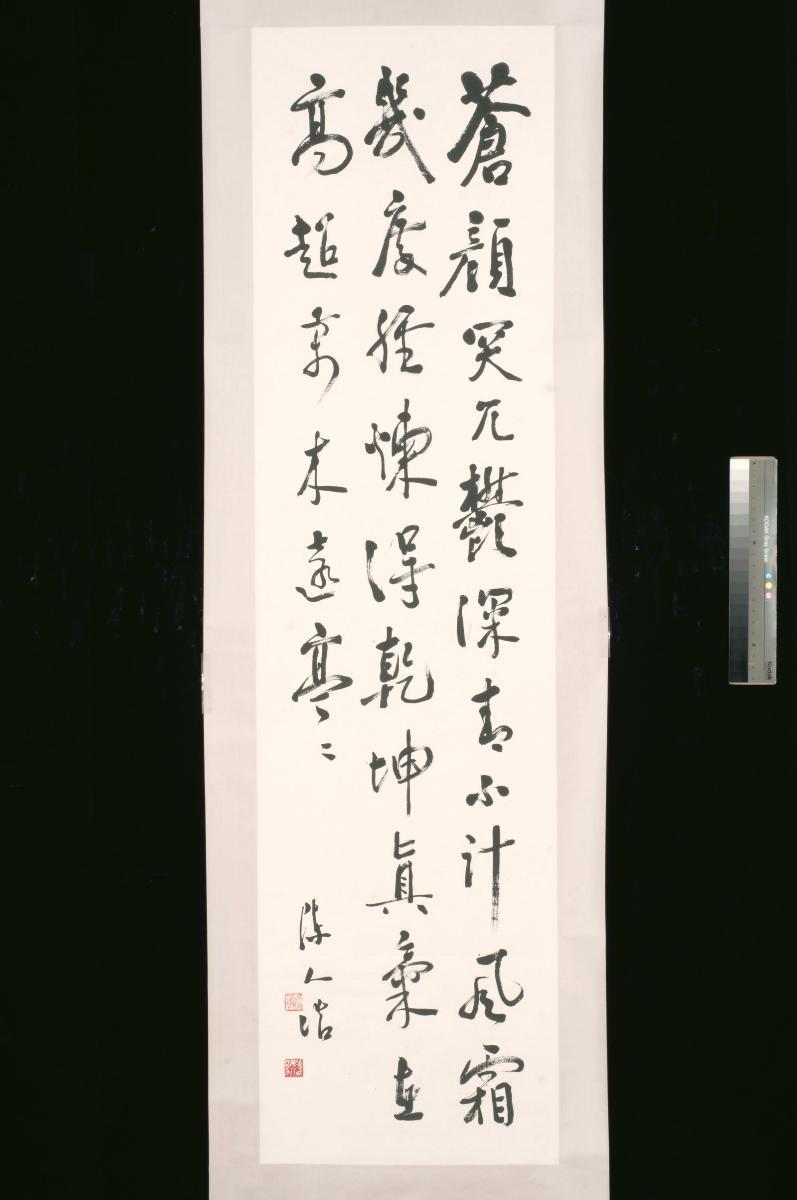 蒼顏突兀鬱深青不計風霜
幾度經煉得乾坤真氣在
高超萬木遠亭〻
陳人浩
KODAK Gray Scale
Kodak